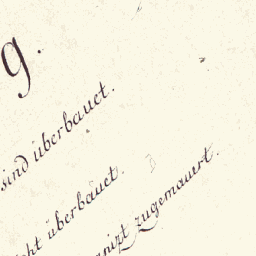 9.
sind überbauet.
überbauet.
zugemauert.